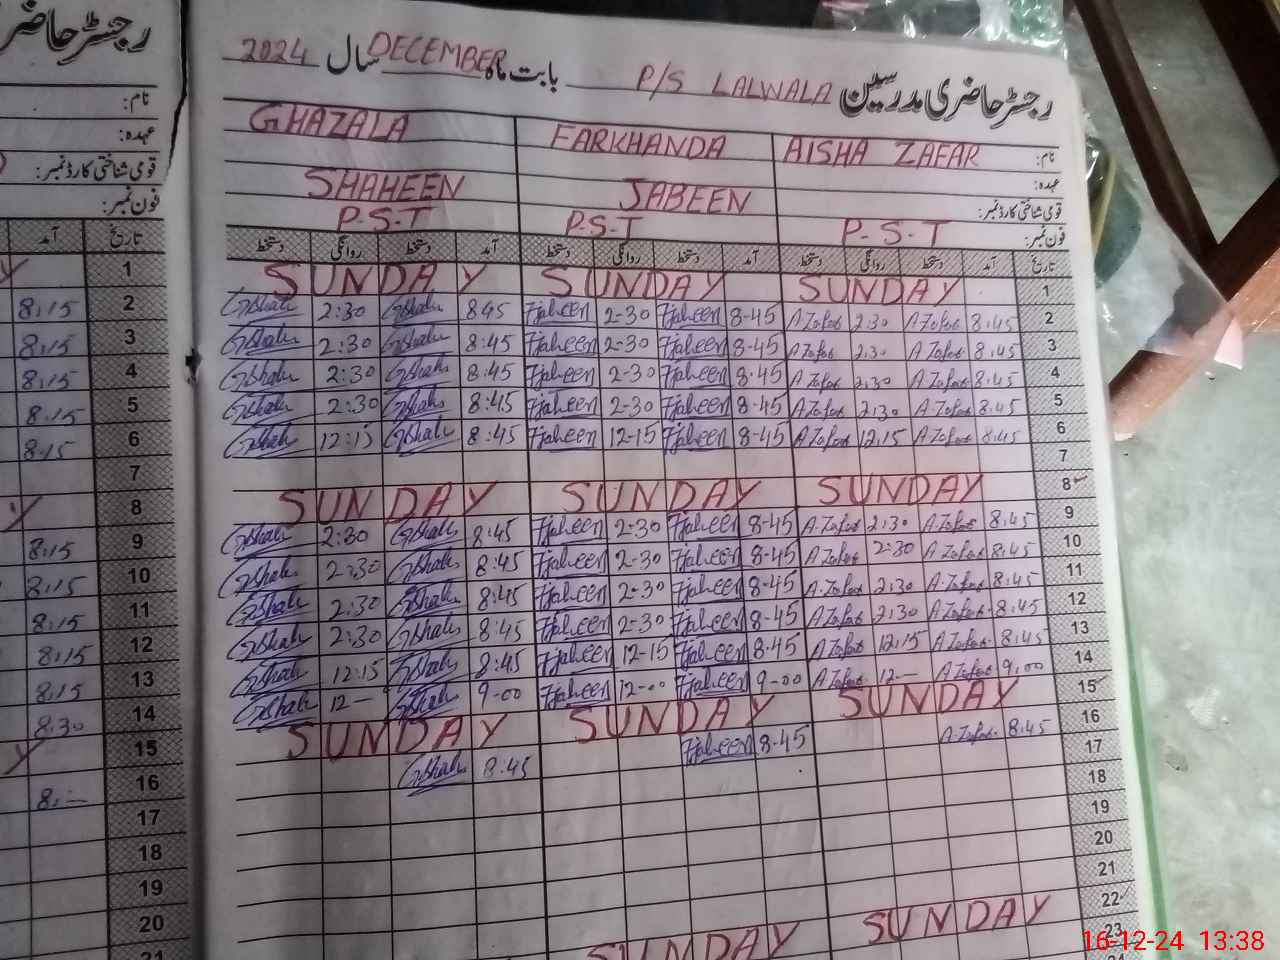 رجسٹر حاضری مدرسین P/S LALWALA بابت ماہ DECEMBER سال 2024
نام: AISHA ZAFAR FARKHANDA GHAZALA
عہدہ: JABEEN SHAHEEN
قومی شناختی کارڈ نمبر:
فون نمبر: P-S-T P.S.T P-S-T
تاریخ آمد دستخط روانگی دستخط آمد دستخط روانگی دستخط آمد دستخط روانگی دستخط
1 SUNDAY SUNDAY SUNDAY
2 8:45 A Zafar 2:30 A Zafar 8-45 Fjabeen 2-30 Fjabeen 8:45 GShah 2:30 GShah
3 8:45 A Zafar 2:30 A Zafar 8-45 Fjabeen 2-30 Fjabeen 8:45 GShah 2:30 GShah
4 8:45 A Zafar 2:30 A Zafar 8-45 Fjabeen 2-30 Fjabeen 8:45 GShah 2:30 GShah
5 8:45 A Zafar 2:30 A Zafar 8-45 Fjabeen 2-30 Fjabeen 8:45 GShah 2:30 GShah
6 8:45 A Zafar 12:15 A Zafar 8-45 Fjabeen 12-15 Fjabeen 8:45 GShah 12:15 GShah
7
8 SUNDAY SUNDAY SUNDAY
9 8:45 A Zafar 2:30 A. Zafar 8-45 Fjabeen 2-30 Fjabeen 8:45 GShah 2:30 GShah
10 8:45 A Zafar 2:30 A Zafar 8-45 Fjabeen 2-30 Fjabeen 8:45 GShah 2:30 GShah
11 8:45 A. Zafar 2:30 A. Zafar 8-45 Fjabeen 2-30 Fjabeen 8:45 GShah 2:30 GShah
12 8:45 A Zafar 2:30 A Zafar 8-45 Fjabeen 2-30 Fjabeen 8:45 GShah 2:30 GShah
13 8:45 A Zafar 12:15 A Zafar 8-45 Fjabeen 12-15 Fjabeen 8:45 GShah 12:15 GShah
14 9:00 A Zafar 12— A Zafar 9-00 Fjabeen 12-00 Fjabeen 9-00 GShah 12— GShah
15 SUNDAY SUNDAY SUNDAY
16 8:45 A. Zafar 8-45 Fjabeen 8:45 GShah
17
18
19
20
21
22 SUNDAY SUNDAY
23
رجسٹر حاضری
نام:
عہدہ:
قومی شناختی کارڈ نمبر:
فون نمبر:
تاریخ آمد
1 Y
2 8:15
3 8:15
4 8:15
5 8:15
6 8:15
7
8 Y
9 8:15
10 8:15
11 8:15
12 8:15
13 8:15
14 8:30
15 Y
16 8:—
17
18
19
20
21
16-12-24 13:38